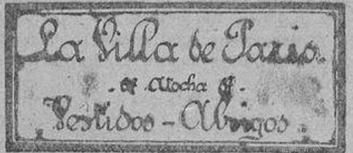 La Villa de Paris.
Atocha
Vestidos - Abrigos